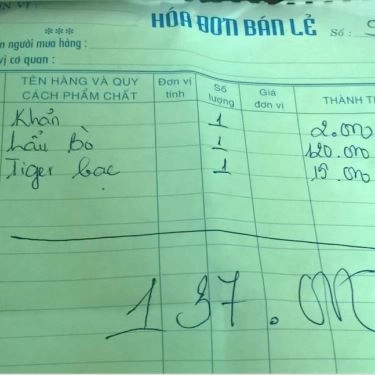 HÓA ĐƠN BÁN LẺ
***
Số :
n người mua hàng :
vị cơ quan :
TÊN HÀNG VÀ QUY CÁCH PHẨM CHẤT Đơn vị tính Số lượng Giá đơn vị THÀNH T
Khăn 1 2.000
Lẩu Bò 1 120.000
Tiger bạc 1 15.000
137.000